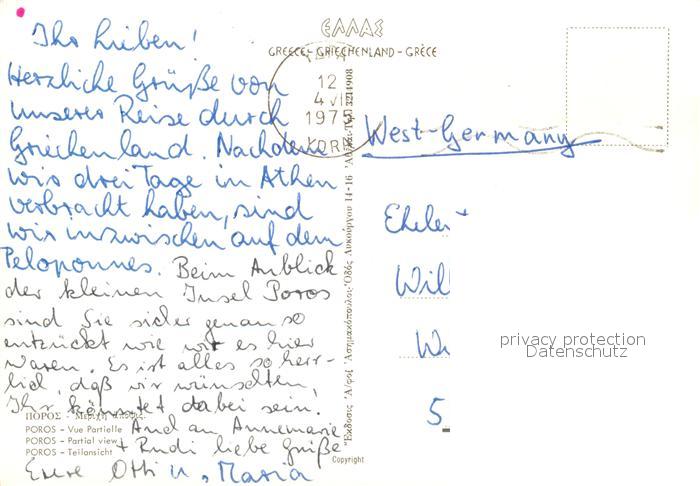 ΕΛΛΑΣ
GREECE - GRIECHENLAND - GRÈCE
12
4 VI
1975
Ihr Lieben!
Herzliche Grüße von
unserer Reise durch
Griechenland. Nachdem
wir drei Tage in Athen
verbracht haben, sind
wir inzwischen auf dem
Peloponnes. Beim Anblick
der kleinen Insel Poros
sind Sie sicher genau so
entzückt wie wir es hier
waren. Es ist alles so herr-
lich, daß wir wünschten,
Ihr könntet dabei sein.
Auch an Annemarie
+ Rudi liebe Grüße
Eure Otti u. Maria
ΠΟΡΟΣ - Μερική ἄποψις.
POROS - Vue Partielle
POROS - Partial view
POROS - Teilansicht
Copyright
West-Germany
Wil
5
privacy protection
Datenschutz